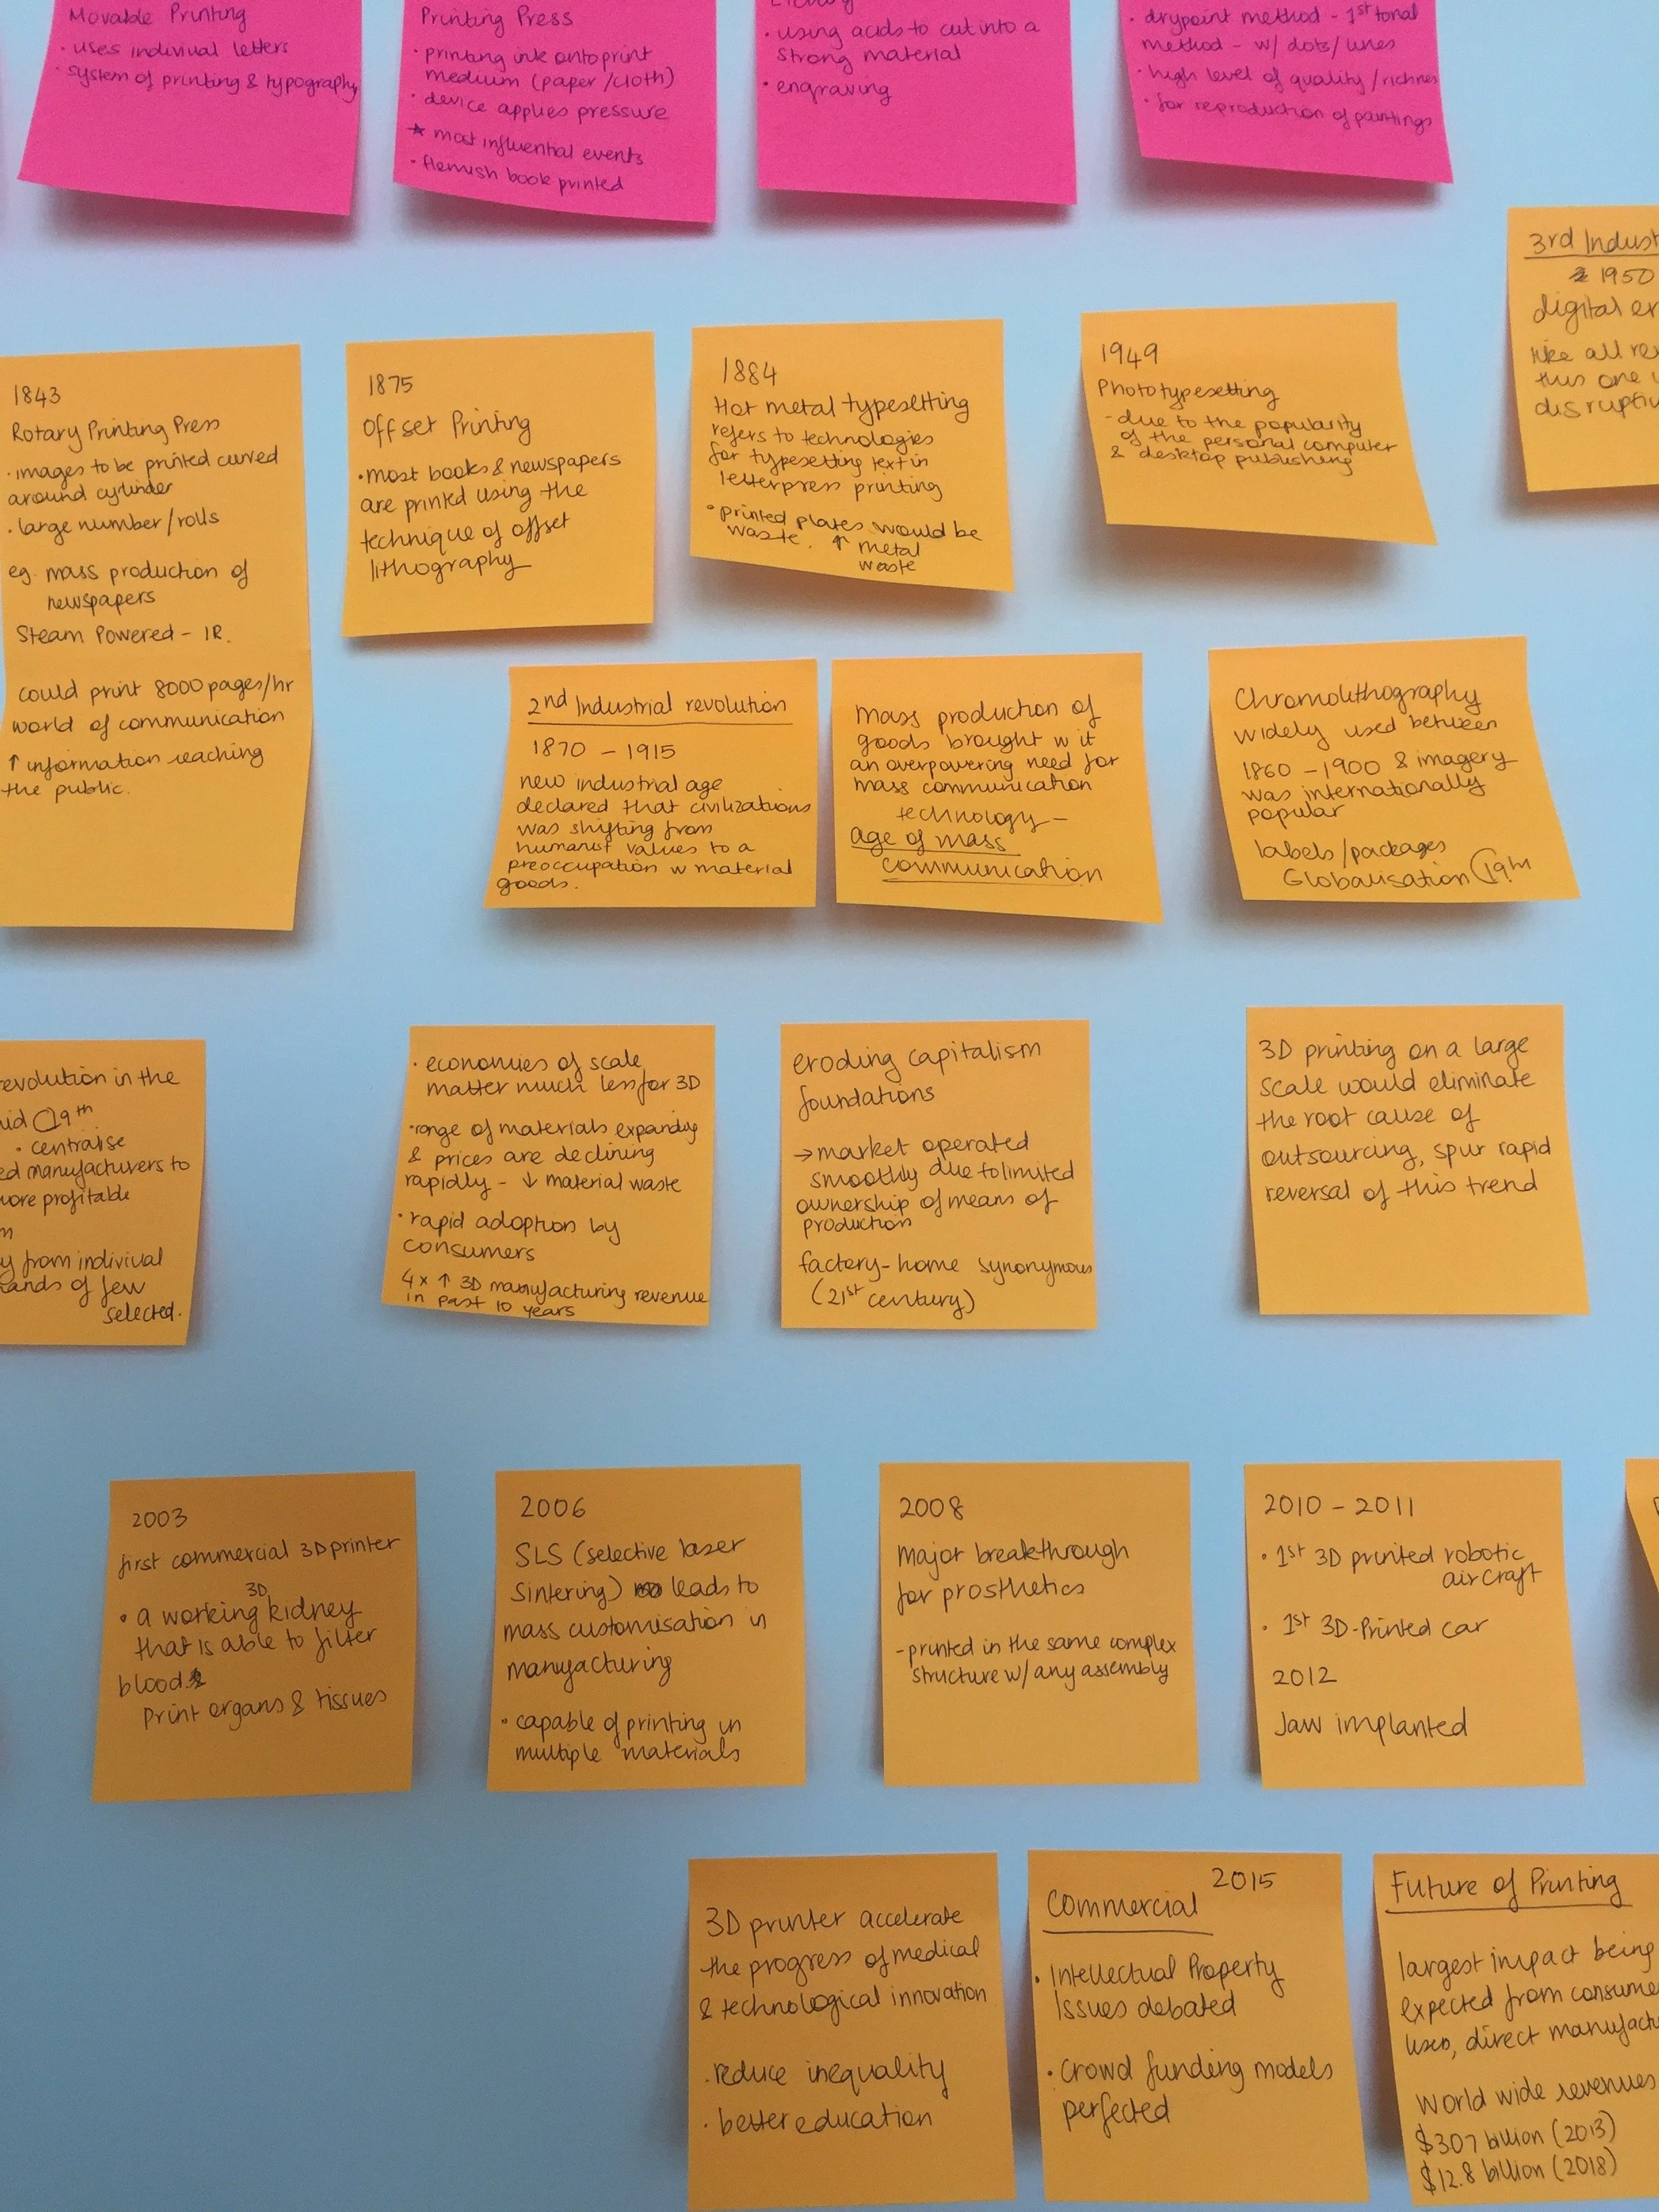 Movable Printing
· uses indiviual letters
· system of printing & typography
Printing Press
· printing ink onto print
medium (paper/cloth)
· device applies pressure
* most influential events
· flemish book printed
· using acids to cut into a
strong material
· engraving
· drypoint method - 1st tonal
method - w/ dots/lines
· high level of quality/richnes
· for reproduction of paintings
3rd Indust
1950
digital er
like all re
this one
disruptiv
1843
Rotary Printing Press
· images to be printed curved
around cylinder
· large number/rolls
eg. mass production of
newspapers
Steam Powered - IR.
could print 8000 pages/hr
world of communication
↑ information reaching
the public.
1875
Offset Printing
· most books & newspapers
are printed using the
technique of offset
lithography
1884
Hot metal typesetting
refers to technologies
for typesetting text in
letterpress printing
· printed plates would be
waste. ↑ metal
waste
1949
Phototypesetting
- due to the popularity
of the personal computer
& desktop publishing
2nd Industrial revolution
1870 - 1915
new industrial age
declared that civilizations
was shifting from
humanist values to a
preoccupation w material
goods.
mass production of
goods brought w it
an overpowering need for
mass communication
technology -
age of mass
communication
Chromolithography
widely used between
1860 - 1900 & imagery
was internationally
popular
labels/packages
Globalisation C19th
evolution in the
mid C19th
· centralise
ed manufacturers to
more profitable
y from indivival
hands of few
selected.
· economies of scale
matter much less for 3D
· range of materials expanding
& prices are declining
rapidly - ↓ material waste
· rapid adoption by
consumers
4x ↑ 3D manufacturing revenue
in past 10 years
eroding capitalism
foundations
→ market operated
smoothly due to limited
ownership of means of
production
factory-home synonymous
(21st century)
3D printing on a large
scale would eliminate
the root cause of
outsourcing, spur rapid
reversal of this trend
2003
first commercial 3D printer
3D
· a working kidney
that is able to filter
blood
Print organs & tissues
2006
SLS (selective laser
sintering) leads to
mass customisation in
manufacturing
· capable of printing in
multiple materials
2008
Major breakthrough
for prosthetics
- printed in the same complex
structure w/ any assembly
2010 - 2011
· 1st 3D printed robotic
aircraft
· 1st 3D-Printed car
2012
Jaw implanted
3D printer accelerate
the progress of medical
& technological innovation
· reduce inequality
· better education
2015
Commercial
· Intellectual Property
Issues debated
· crowd funding models
perfected
Future of Printing
largest impact being
expected from consume
uses, direct manufactu
world wide revenues
$307 billion (2013)
$12.8 billion (2018)